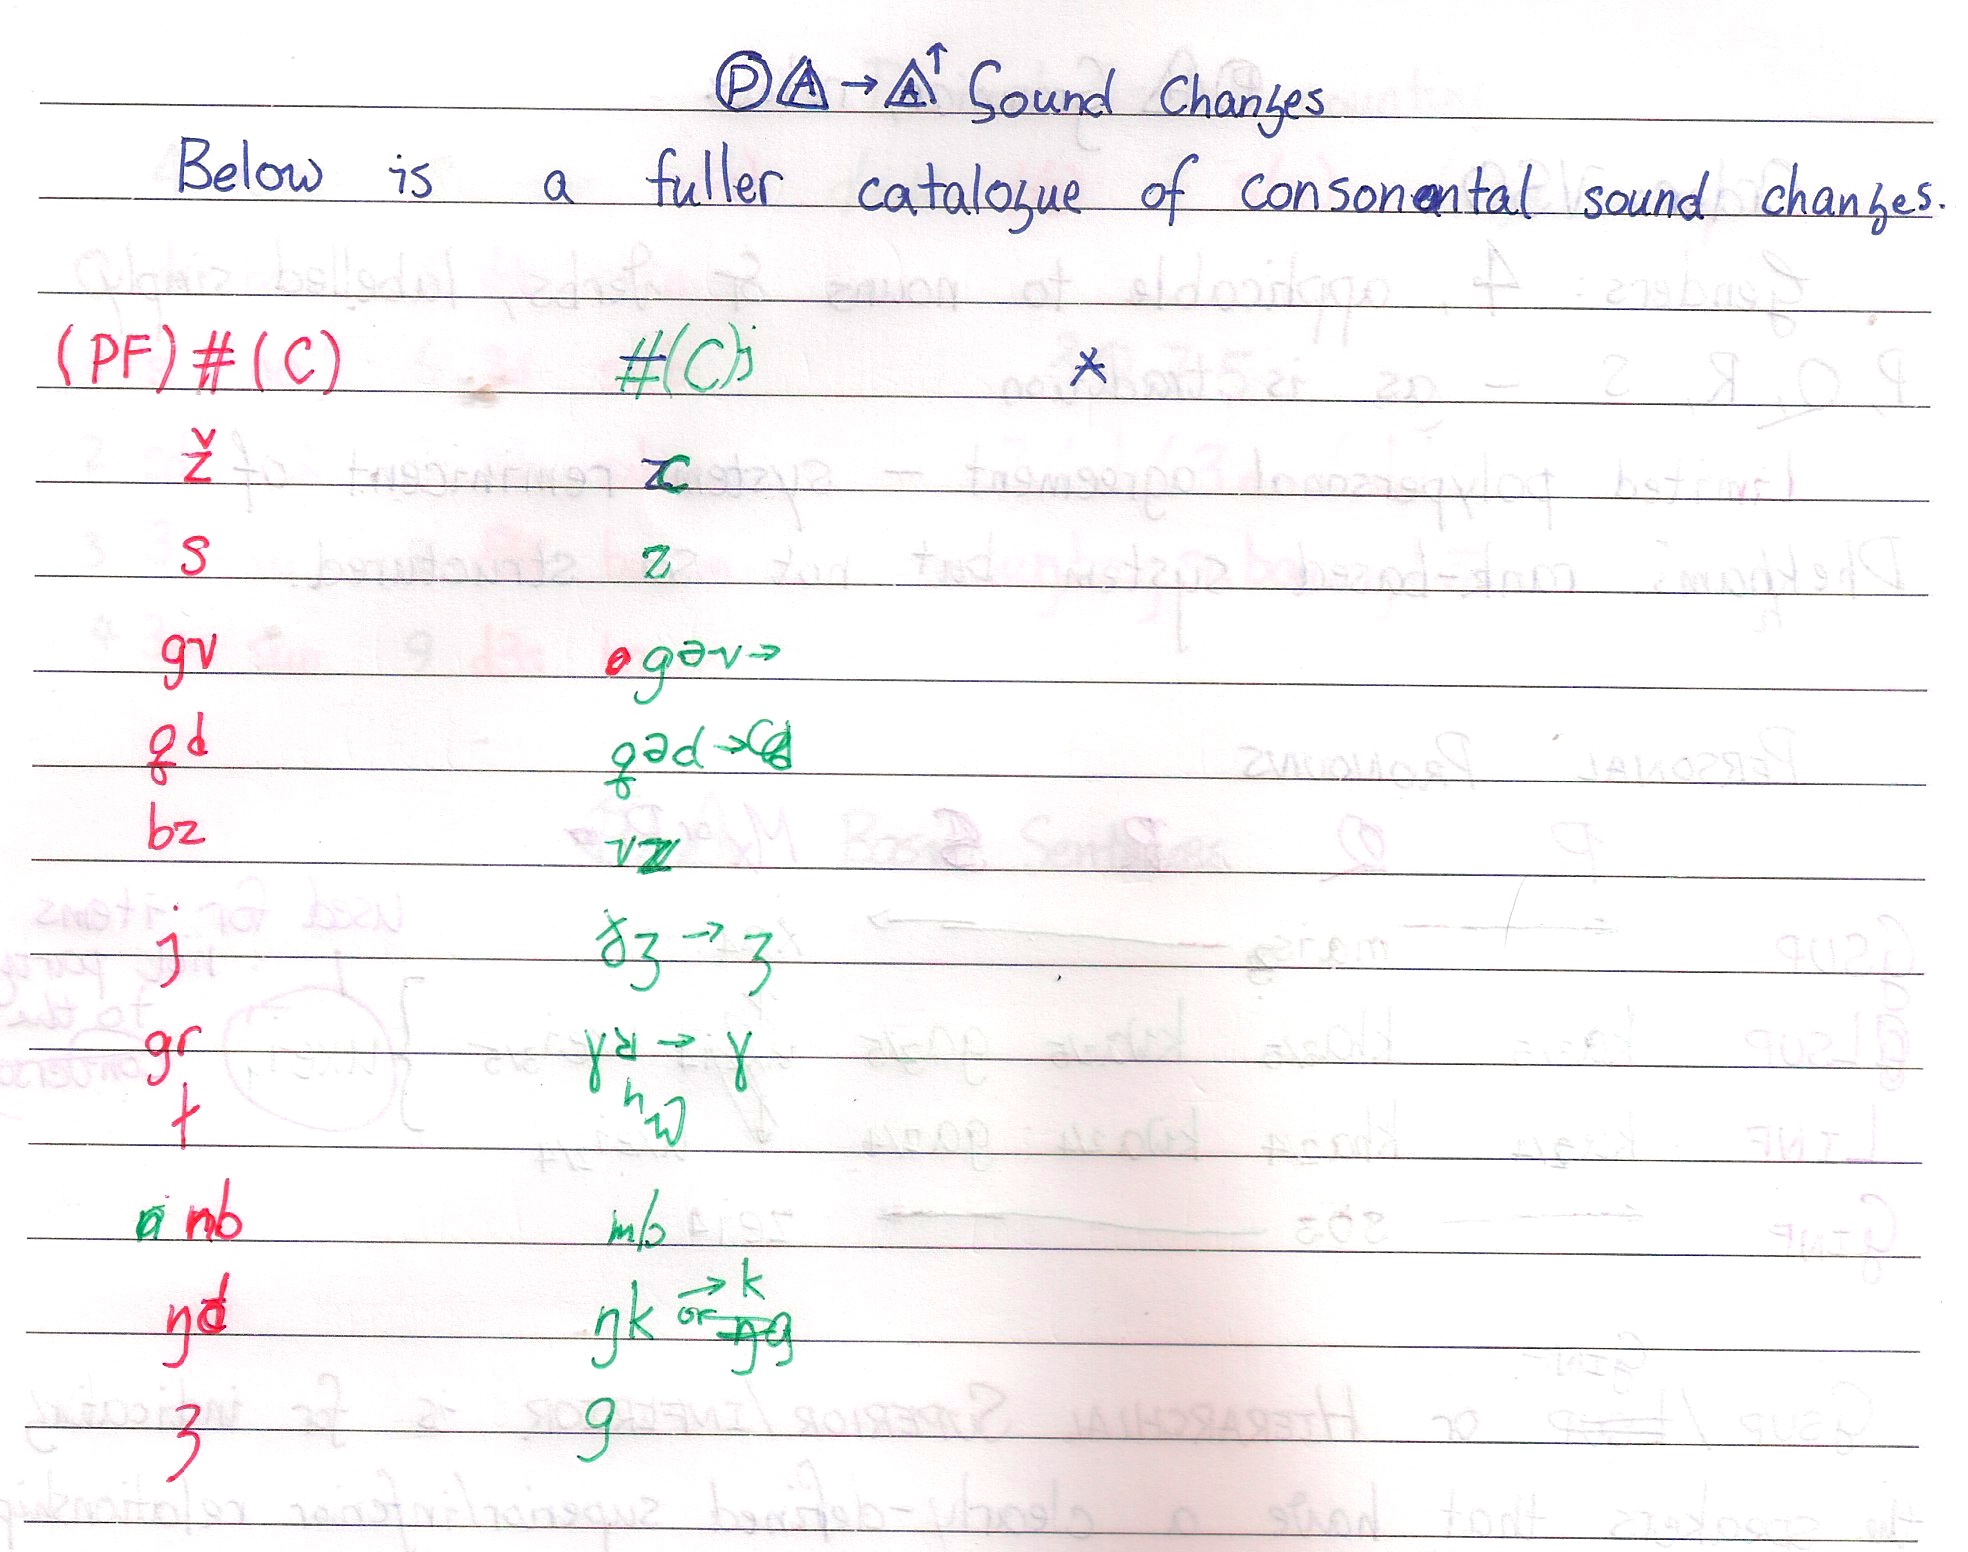 Ⓟ A → A↑ Sound Changes
Below is a fuller catalogue of consonental sound changes.
(PF) #(C) #(C)j *
ž
s z
gv gəv→
qd qəd→
bz vz
j ɣʒ → ʒ
gr ɣʁ → ɣ
t
nb mb
ŋd ŋk → k or
ʒ g